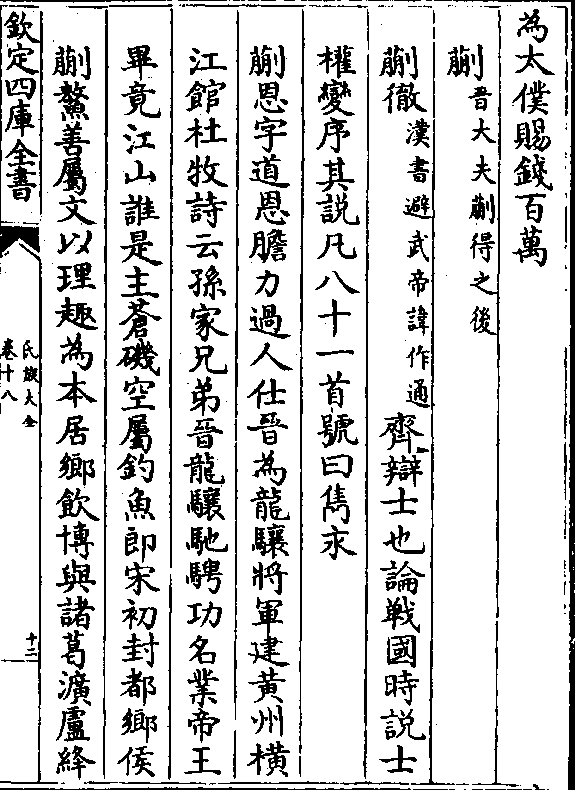 為太僕賜錢百萬
蒯晉大夫蒯得之後
蒯徹漢書避武帝諱作通齊辯士也論戰國時說士
權變序其說凡八十一首號曰雋永
蒯恩字道恩膽力過人仕晉為龍驤將軍建黃州橫
江館杜牧詩云孫家兄弟晉龍驤馳騁功名業帝王
畢竟江山誰是主蒼磯空屬釣魚郎宋初封都鄉侯
蒯鰲善屬文以理趣為本居鄉飲博與諸葛濆盧絳
欽定四庫全書
氏族大全
卷十八
十二